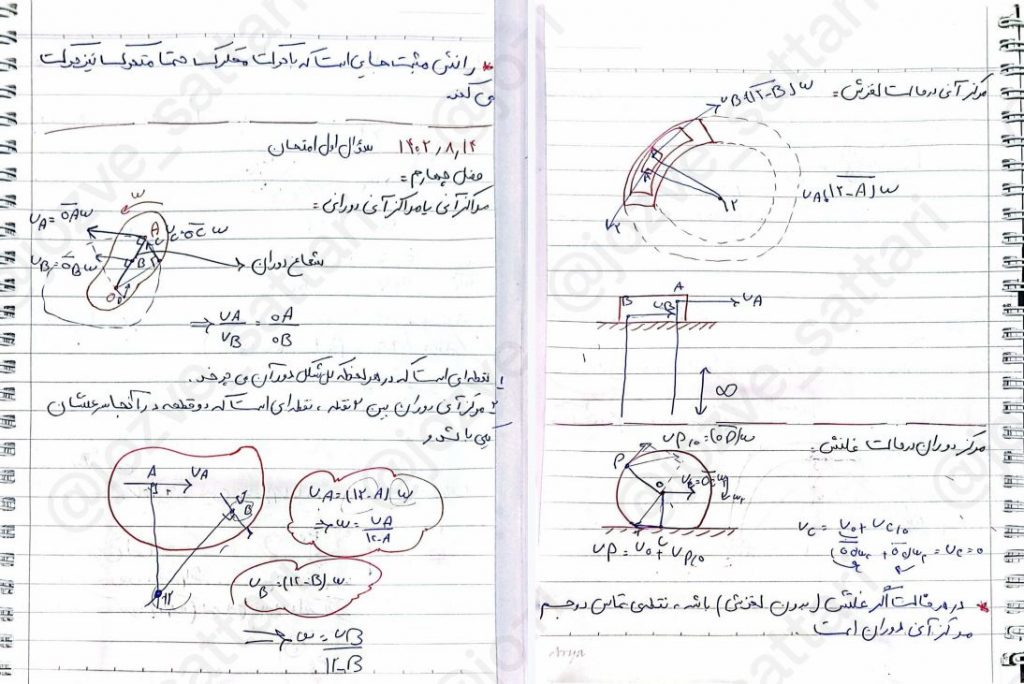 * رانش مثبت هایی است که با حرکت محرک حتما متحرک نیز حرکت
می کند.
۱۴۰۲,۸,۱۴ سؤال اول امتحان
فصل چهارم =
مراکز آنی یا مراکز آنی دورانی =
ω
VA = OA ω
A VC = OC ω
VB = OB ω
B
شعاع دوران
⇒ VA/VB = OA/OB
۱ نقطه ای است که در هر لحظه کل شکل دور آن می چرخد.
۲ مرکز آنی دوران بین ۲ نقطه ، نقطه ای است که دو قطعه در آنجا سرعتشان
یکی باشد و
A VA
B
۱۲
VA = (۱۲-A) ω
⇒ ω = VA/۱۲-A
VB = (۱۲-B) ω
⇒ ω = VB/۱۲-B
مرکز آنی در حالت لغزش =
VB = (۱۲-B) ω
۱۲
VA = (۱۲-A) ω
۲
B VB A VA
∞
مرکز دوران در حالت غلتش =
VP/O = (OP) ω
P
O
C
VP = VO + VP/O
VC = VO + VC/O
= VC = 0
* در هر حالت اگر غلتش (بدون لغزش) باشد ، نقطه تماس دو جسم
مرکز آنی دوران است
Arya
@jozve_sattari